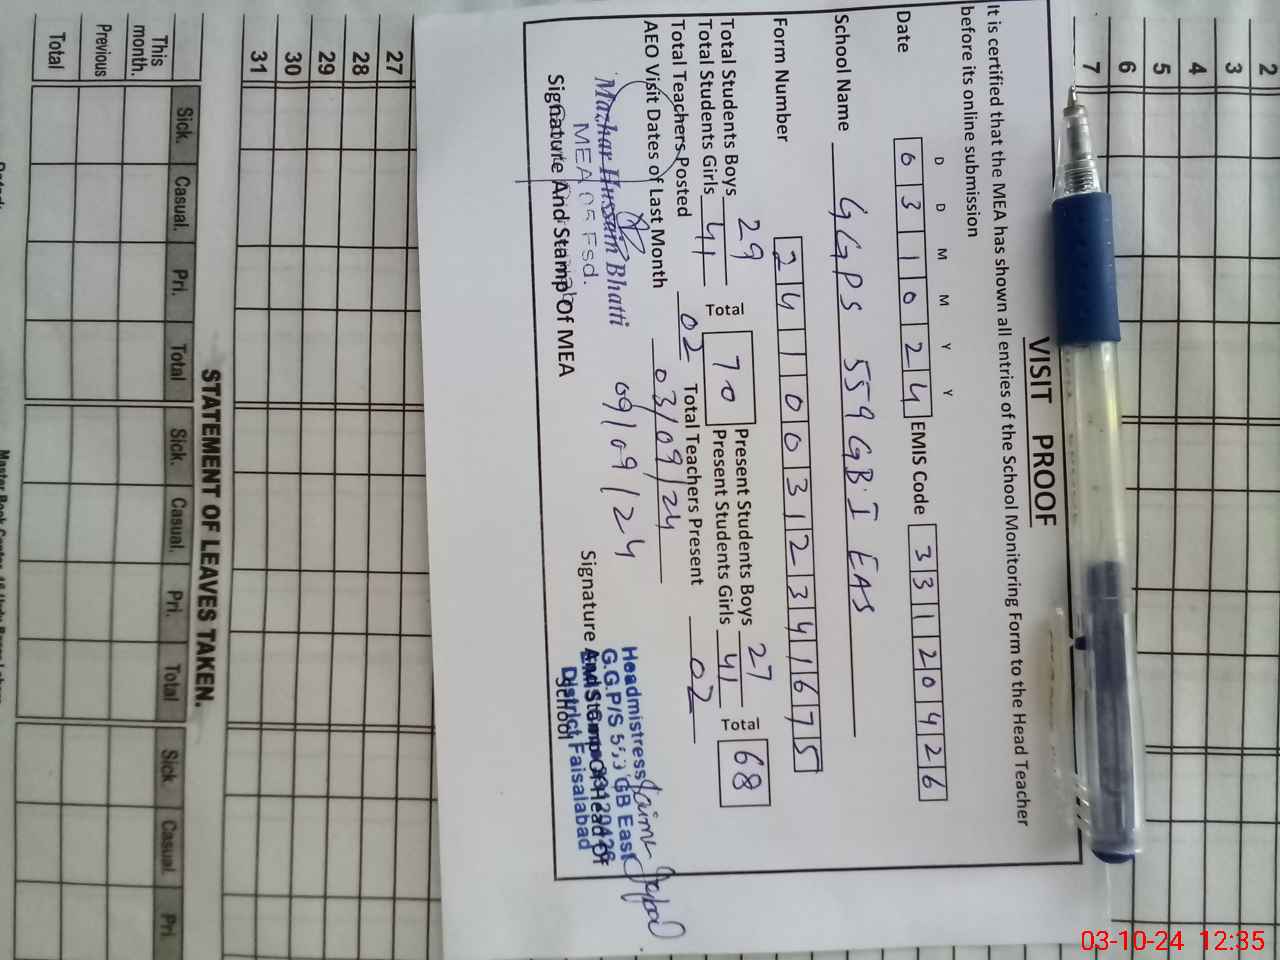 VISIT PROOF
It is certified that the MEA has shown all entries of the School Monitoring Form to the Head Teacher
before its online submission
D D M M Y Y
Date 6 3 1 0 2 4 EMIS Code 3 3 1 2 0 4 2 6
School Name GGPS 559 GB I EAS
Form Number 2 4 1 0 0 3 1 2 3 4 1 6 7 5
Total Students Boys 29 Present Students Boys 27
Total Students Girls 41 Total 70 Present Students Girls 41 Total 68
Total Teachers Posted 02 Total Teachers Present 02
AEO Visit Dates of Last Month 03/09/24
09/09/24
Mazhar Hussain Bhatti
MEA 05 Fsd.
Signature And Stamp Of MEA
Signature And Stamp Of Head Of
School
Headmistress
G.G.P/S GB East
District Faisalabad
2
3
4
5
6
7
27
28
29
30
31
STATEMENT OF LEAVES TAKEN.
Sick. Casual. Pri. Total Sick. Casual. Pri. Total Sick. Casual. Pri.
This
month.
Previous
Total
03-10-24 12:35